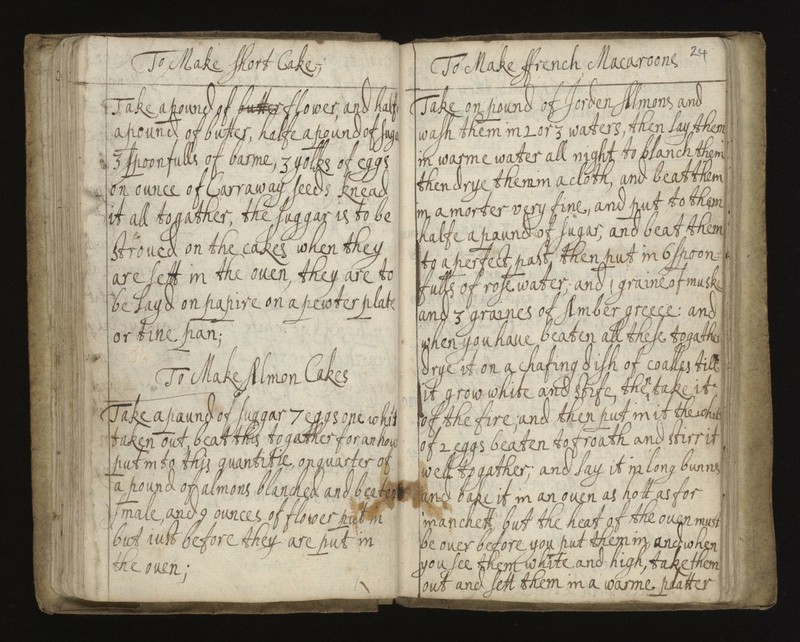 To Make Short Cake;
Take a pound of butter flower, and halfe
a pound of butter, halfe a pound of suga
3 spoonfulls of barme, 3 yolks of eggs
on ounce of Carraway seeds knead
it all togather, the suggar is to be
stroued on the cakes when they
are sett in the ouen, they are to
be layd on papire on a pewter plate
or tine pan;
To Make Almon Cakes
Take a paund of suggar 7 eggs one whit
taken out, beat this togather for an how
put into this quantitie, on quarter of
a pound of almons blanched and beaten
smale, and 9 ounces of flower put in
but iust before they are put in
the ouen;
24
To Make ffrench Macaroons
Take on pound of Jorden Almons and
wash them in 2 or 3 waters, then lay them
in warme water all night to blanch them
then drye them in a cloth, and beat them
in a morter very fine, and put to them
halfe a paund of sugar, and beat them
to a perfect past, then put in 6 spoon-
fulls of rose water, and 1 graine of muske
and 3 graines of Amber greece: and
when you haue beaten all these togather
drye it on a chafing dish of coalles till
it grow white and stife, then take it
of the fire, and then put in it the whits
of 2 eggs beaten to froath and stirr it
well togather; and lay it in long bunns
and bake it in an ouen as hott as for
manchett, but the heat of the ouen must
be ouer before you put them in, and when
you see them white and high, take them
out and sett them in a warme platter